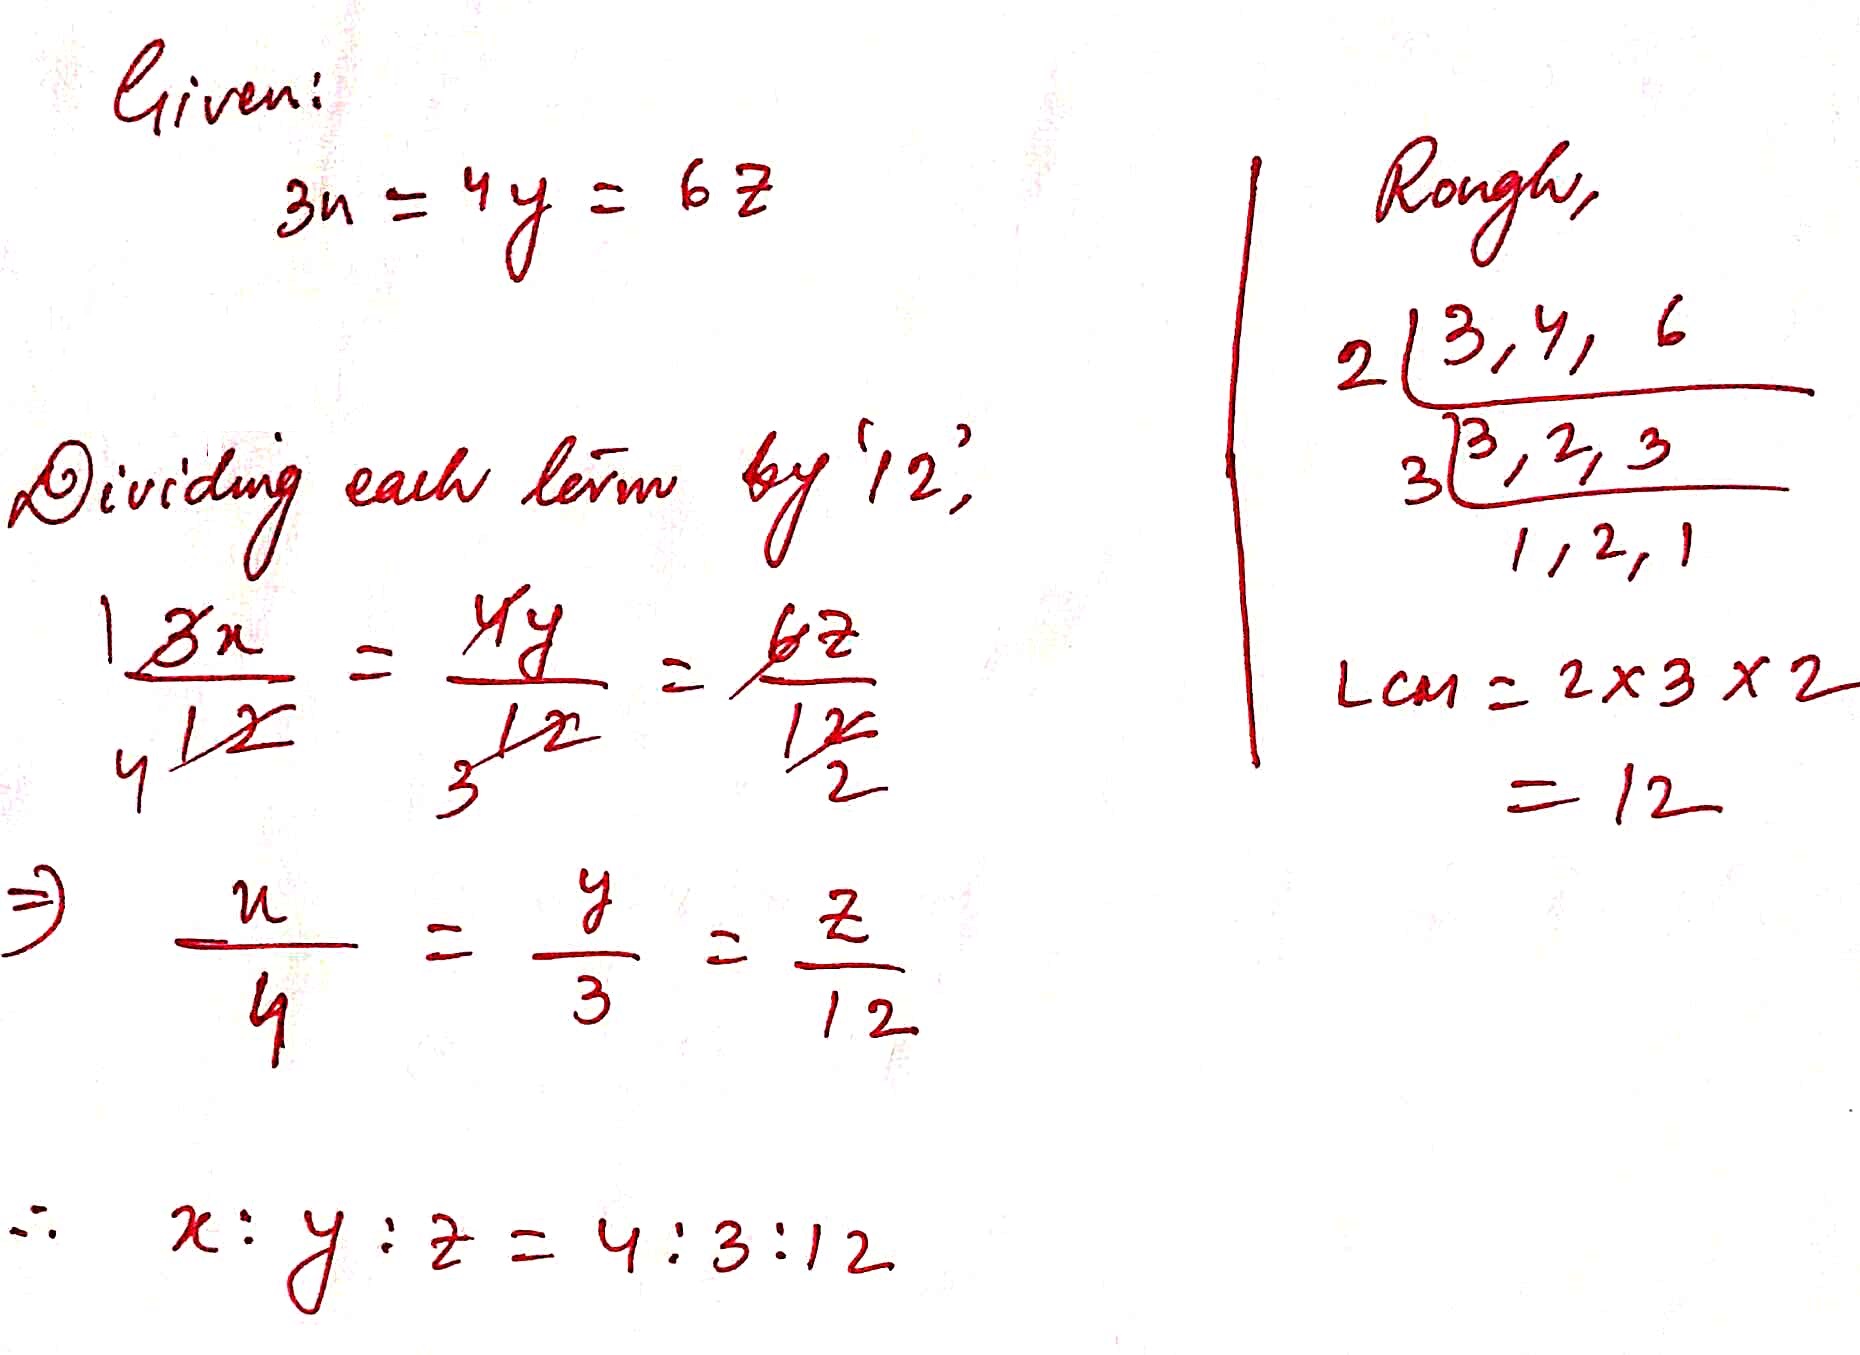 Given:
3x = 4y = 6z
Dividing each term by '12',
1 3x/12 4 = 4y/12 3 = 6z/12 2
⇒ x/4 = y/3 = z/12
∴ x : y : z = 4 : 3 : 12
Rough,
2 | 3, 4, 6
3 | 3, 2, 3
1, 2, 1
LCM = 2 x 3 x 2
= 12